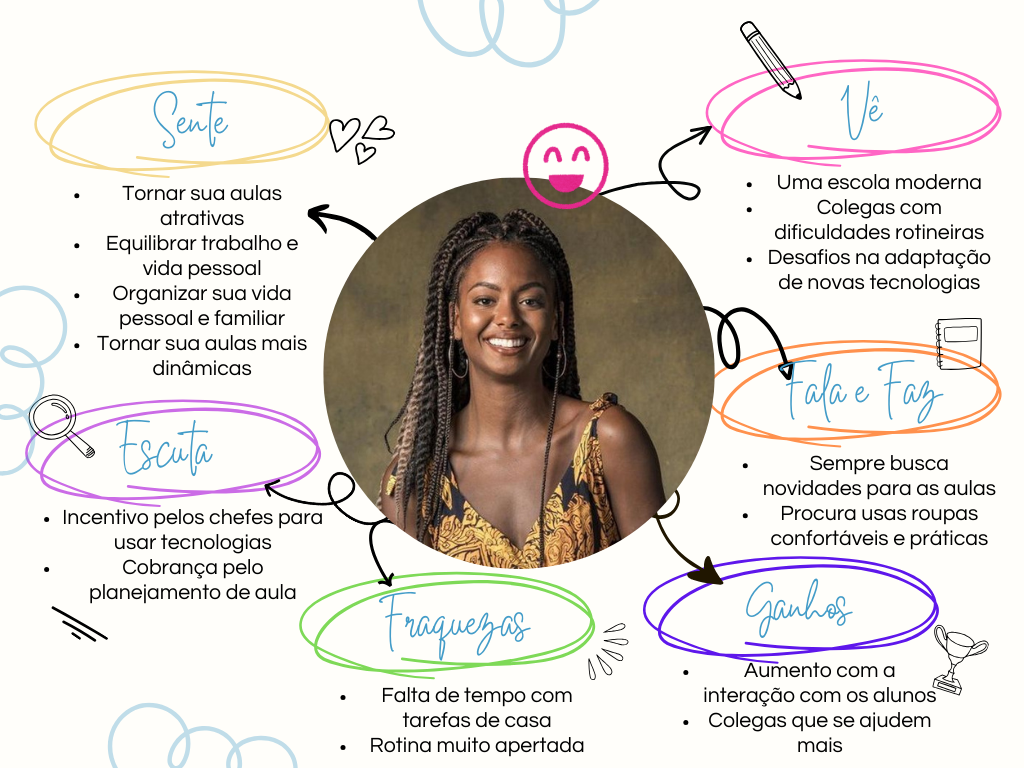 Sente
Tornar sua aulas
atrativas
Equilibrar trabalho e
vida pessoal
Organizar sua vida
pessoal e familiar
Tornar sua aulas mais
dinâmicas
Vê
Uma escola moderna
Colegas com
dificuldades rotineiras
Desafios na adaptação
de novas tecnologias
Fala e Faz
Sempre busca
novidades para as aulas
Procura usas roupas
confortáveis e práticas
Escuta
Incentivo pelos chefes para
usar tecnologias
Cobrança pelo
planejamento de aula
Fraquezas
Falta de tempo com
tarefas de casa
Rotina muito apertada
Ganhos
Aumento com a
interação com os alunos
Colegas que se ajudem
mais